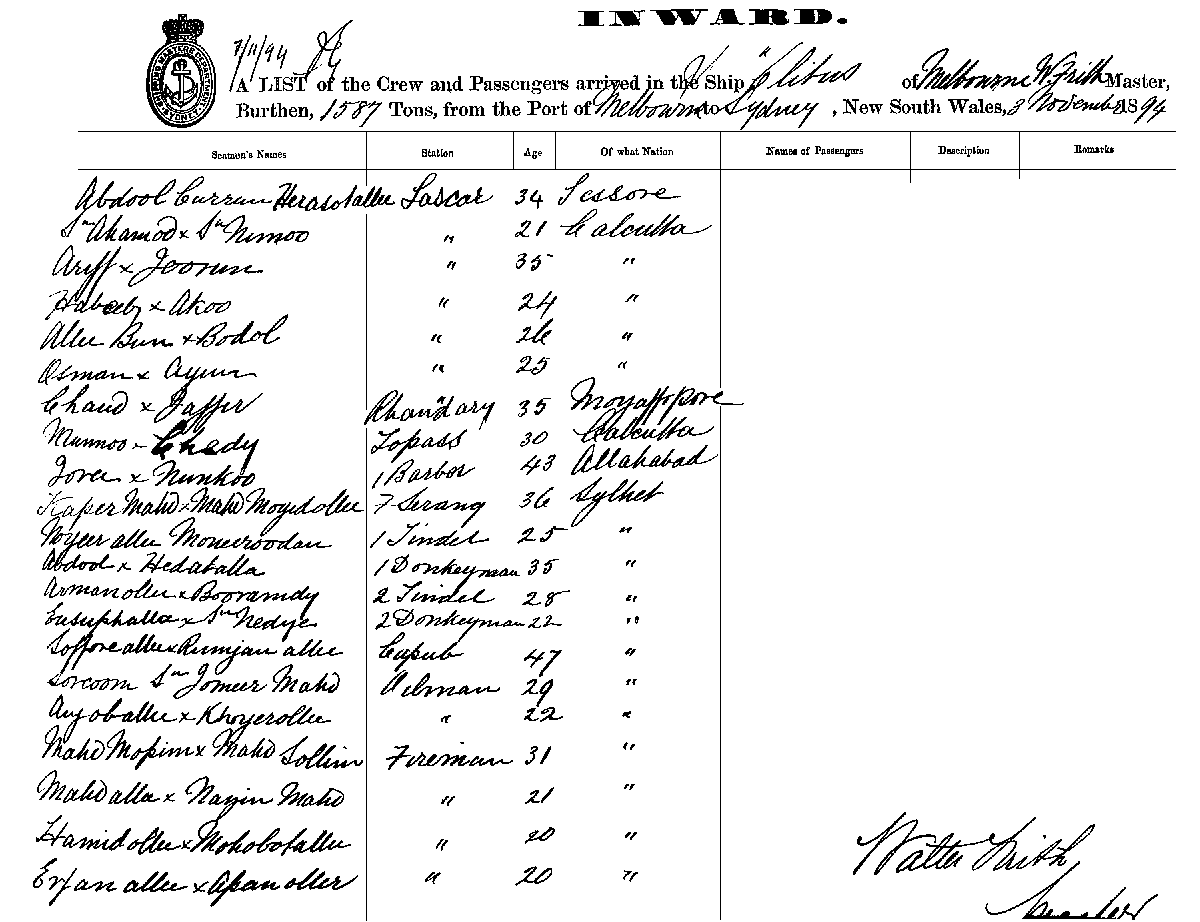 INWARD.
7/11/94
A LIST of the Crew and Passengers arrived in the Ship "Clitus of Melbourne W. Frith Master,
Burthen, 1587 Tons, from the Port of Melbourne to Sydney, New South Wales, 3 November 1894
Seamen's Names Station Age Of what Nation Names of Passengers Description Remarks
Abdool Curram Herasotallee Lascar 34 Jessore
Sn Ahamod x Sn Nimoo " 21 Calcutta
Ariff x Joomun " 35 "
Habeeb x Akoo " 24 "
Allee Bun x Bodol " 26 "
Osman x Aynn " 25 "
Chand x Jaffer Bhandary 35
Munnoo - Chedy Topass 30 Calcutta
Jova x Nunkoo 1 Barbor 43 Allahabad
Kaper Mahd x Mahd Moyedollee 7 Serang 36 Sylhet
allee Moneeroodan 1 Tindel 25 "
Abdool x Hedatalla 1 Donkeyman 35 "
Armanollee x Booramdy 2 Tindel 28 "
Eusuphalla x Sn Nedye 2 Donkeyman 22 "
Soffore allee x Rumjan allee 47 "
Sorcoom Sn Jomeer Mahd Oilman 29 "
Ayoballee x Khoyerollee " 22 "
Mahd Mopim x Mahd Sollim Fireman 31 "
Mahdalla x Nayin Mahd " 21 "
Hamidollee x Mohobotallee " 20 "
Erfan allee x Apan oller " 20 "
Walter Frith
Master